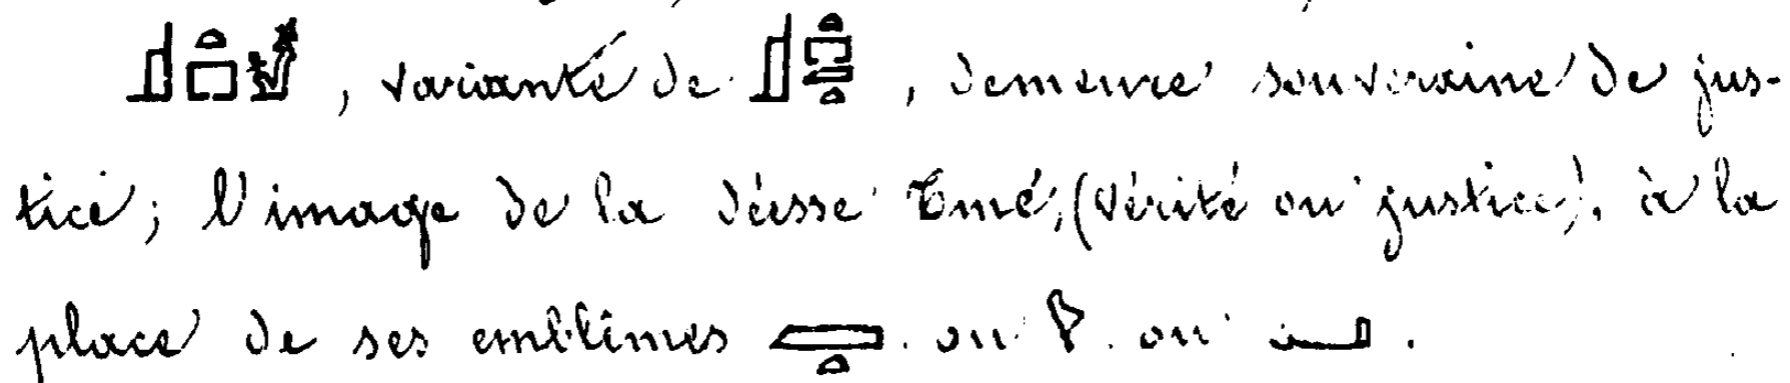 , variante de , demeure souveraine de jus-
tice; l'image de la déesse Tmé, (vérité ou justice), à la
place de ses emblêmes . ou . ou .